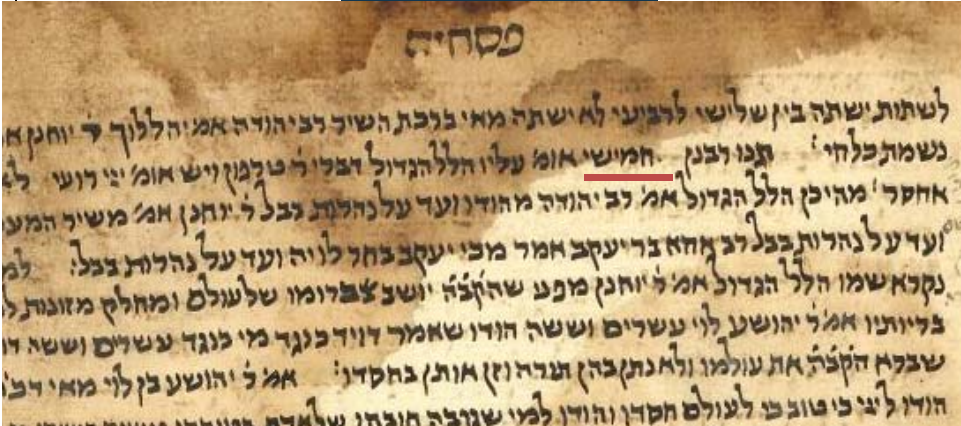 פסחים
לשתות ישתה בין שלישי לרביעי לא ישתה מאי ברכת השיר רב יהודה אמ' יהללוך ר' יוחנן א
נשמת כל חי תנו רבנן חמישי אומ' עליו הלל הגדול דברי ר' טרפון ויש אומ' ייי רועי
אחסר מהיכן הלל הגדול אמ' רב יהודה מהודו ועד על נהרות בבל ר' יוחנן אמ' משיר המע
ועד על נהרות בבל רב אחא בר יעקב אמר מכי יעקב בחר לו יה ועד על נהרות בבל
נקרא שמו הלל הגדול אמ' ר' יוחנן מפני שהקב"ה יושב ברומו של עולם ומחלק מזונות ל
בריותיו אמ' ר' יהושע לוי עשרים וששה הודו שאמר דויד כנגד מי כנגד עשרים וששה דו
שברא הקב"ה את עולמו ולא נתן בהן תורה וזן אותן בחסדו אמ' ר' יהושע בן לוי מאי דכ'
הודו לייי כי טוב כי לעולם חסדו הודו למי שגובה חובתו של אדם